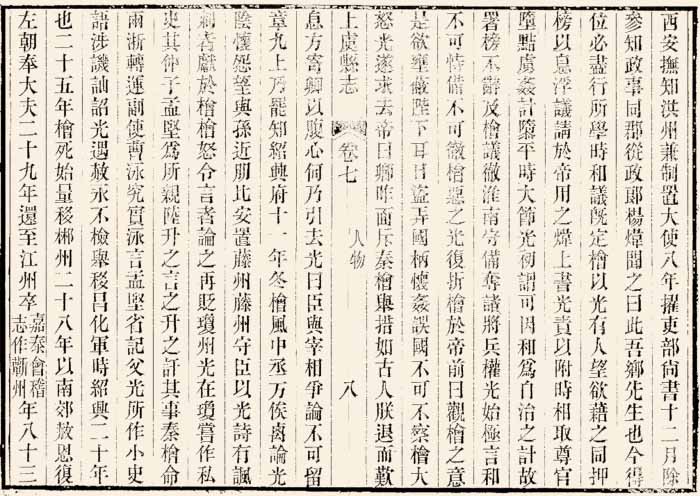 西安撫知洪州兼制置大使八年擢吏部尚書十二月除
參知政事同郡從政郎楊煒聞之曰此吾鄉先生也今得
位必盡行所學時和議既定檜以光有人望欲藉之同押
榜以息浮議請於帝用之煒上書光責以附時相取尊官
墮黠虜姦計隳平時大節光初謂可因和為自治之計故
署榜不辭及檜議徹淮南守備奪諸將兵權光始極言和
不可恃備不可徹檜惡之光復折檜於帝前曰觀檜之意
是欲壅蔽陛下耳目盜弄國柄懷姦誤國不可不察檜大
怒光遂求去帝曰卿昨面斥秦檜舉措如古人朕退而歎
上虞縣志 卷七 人物 八
息方寄卿以腹心何乃引去光曰臣與宰相爭論不可留
章九上乃罷知紹興府十一年冬檜風中丞万俟卨論光
陰懷怨望與孫近朋比安置藤州藤州守臣以光詩有諷
刺者獻於檜檜怒令言者論之再貶瓊州光在瓊嘗作私
史其仲子孟堅為所親陸升之言之升之訐其事秦檜命
兩浙轉運副使曹泳究實泳言孟堅省記父光所作小史
語涉譏訕詔光遇赦永不檢舉移昌化軍時紹興二十年
也二十五年檜死始量移郴州二十八年以南郊赦恩復
左朝奉大夫二十九年還至江州卒嘉泰會稽志作蘄州年八十三